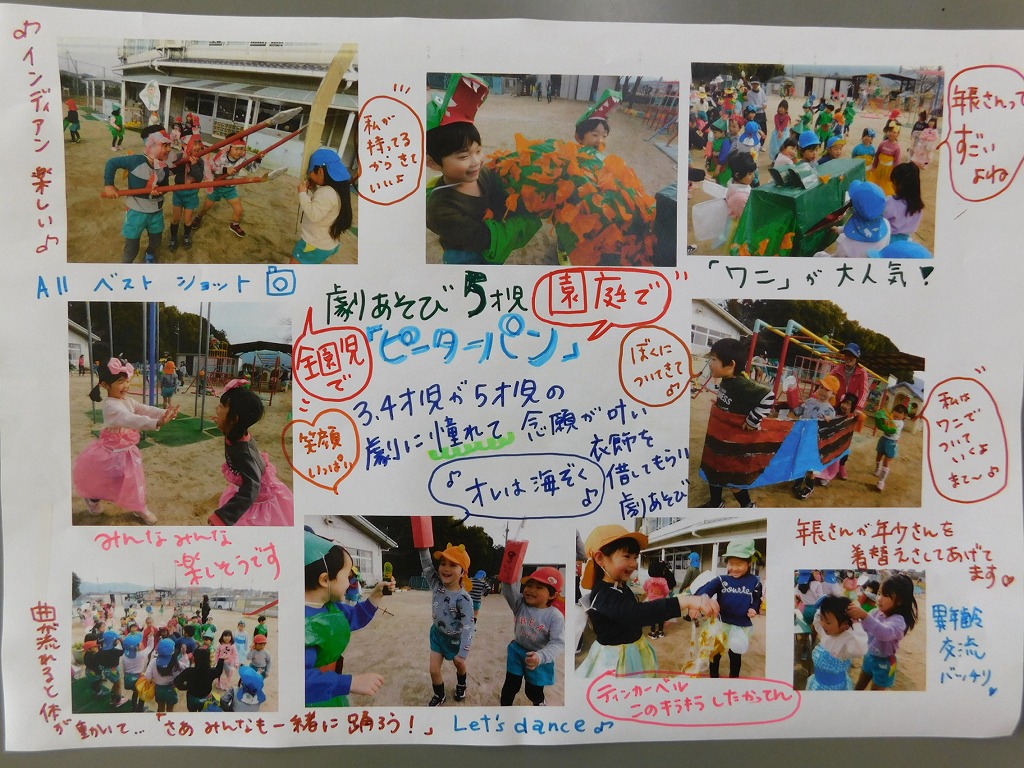 ♪インディアン 楽しい♪
私が
持ってる
からきて
いいよ
年長さんって
すごい
よね
All ベスト ショット
「ワニ」が 大人気!
劇あそび 5才児 園庭で
「ピーターパン」
全園児
で
笑顔
いっぱい
3.4才児が5才児の
劇に憧れて 念願が叶い
衣飾を
借してもらい
劇あそび
♪オレは海ぞく♪
ぼくに
ついてきて
♪
私は
ワニで
ついて
いくよ
まて〜♪
みんなみんな
楽しそうです
年長さんが年少さんを
着替えさしてあげて
ます♡
異年齢
交流
バッチリ
ティンカーベル
このキラキラしたかってん
曲が流れると体
が動いて…「さあ みんなも一緒に踊ろう!」 Let's dance♪